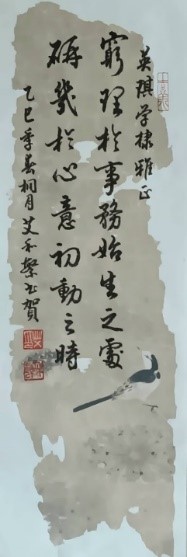 英琪学棣雅正
窮理於事務始生之處
研幾於心意初動之時
乙巳季春桐月艾禾書賀